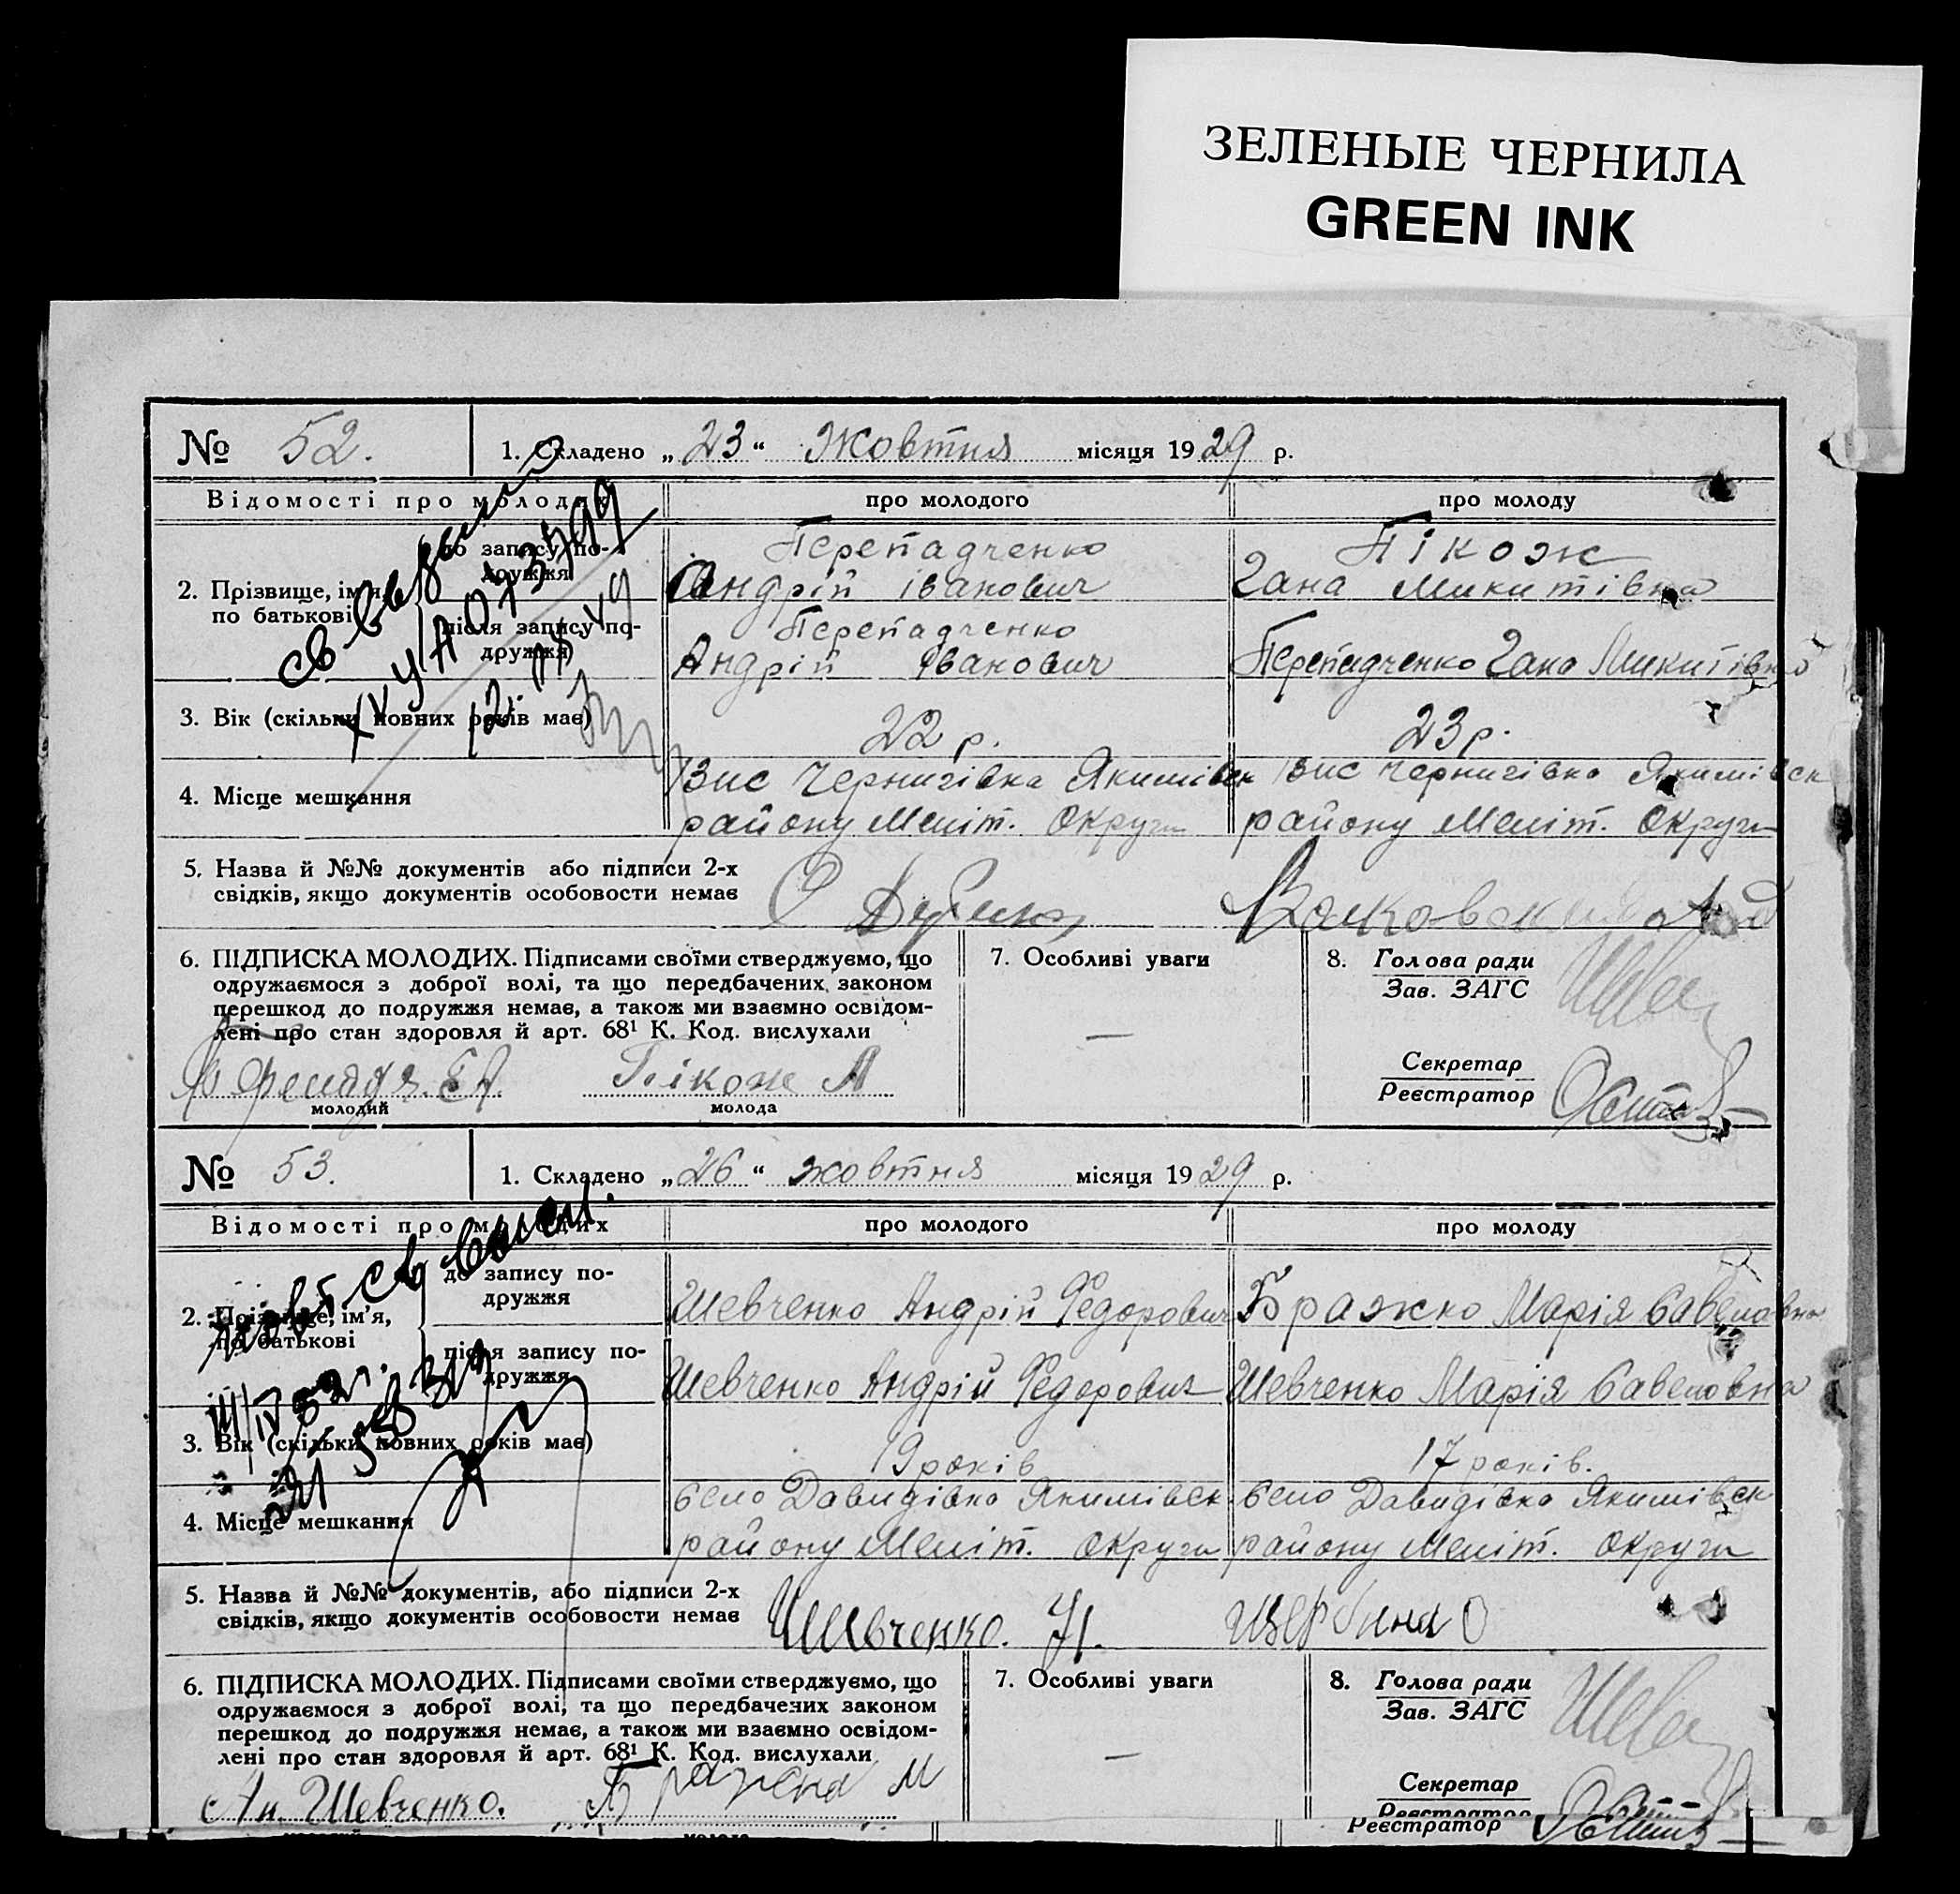 ЗЕЛЕНЫЕ ЧЕРНИЛА
GREEN INK
№ 52. 1. Складено „23“ Жовтня місяця 1929 р.
Відомості про молодих про молодого про молоду
2. Прізвище, ім'я, по батькові
до запису подружжя
Перепадченко
Андрій Іванович
Пікож
Гана Микитівна
після запису подружжя
Перепадченко
Андрій Іванович
Перепадченко Гана Микитівна
3. Вік (скільки повних років має) 22 р. 23 р.
4. Місце мешкання
Вис Чернигівка Якимівск Вис Чернигівка Якимівск
району Меліт. Округи району Меліт. Округи
5. Назва й №№ документів або підписи 2-х
свідків, якщо документів особовости немає
6. ПІДПИСКА МОЛОДИХ. Підписами своїми стверджуємо, що
одружаємося з доброї волі, та що передбачених законом
перешкод до подружжя немає, а також ми взаємно освідом-
лені про стан здоровля й арт. 68¹ К. Код. вислухали
Пікож А
молодий молода
7. Особливі уваги
—
8. Голова ради
Зав. ЗАГС
Секретар
Реєстратор
№ 53. 1. Складено „26“ жовтня місяця 1929 р.
Відомості про молодих про молодого про молоду
2. Прізвище, ім'я,
по батькові
до запису по-
дружжя
Шевченко Андрій Федорович Бражко Марія Савеловна
після запису по-
дружжя
Шевченко Андрій Федорович Шевченко Марія Савеловна
3. Вік (скільки повних років має) 19 років 17 років.
4. Місце мешкання
село Давидівка Якимівск. село Давидівка Якимівск
району Меліт. округи району Меліт. округи
5. Назва й №№ документів, або підписи 2-х
свідків, якщо документів особовости немає
Шивченко. Щербина О
6. ПІДПИСКА МОЛОДИХ. Підписами своїми стверджуємо, що
одружаємося з доброї волі, та що передбачених законом
перешкод до подружжя немає, а також ми взаємно освідом-
лені про стан здоровля й арт. 68¹ К. Код. вислухали
Ан. Шевченко.
7. Особливі уваги
—
8. Голова ради
Зав. ЗАГС
Секретар
Реєстратор
Реєстратор